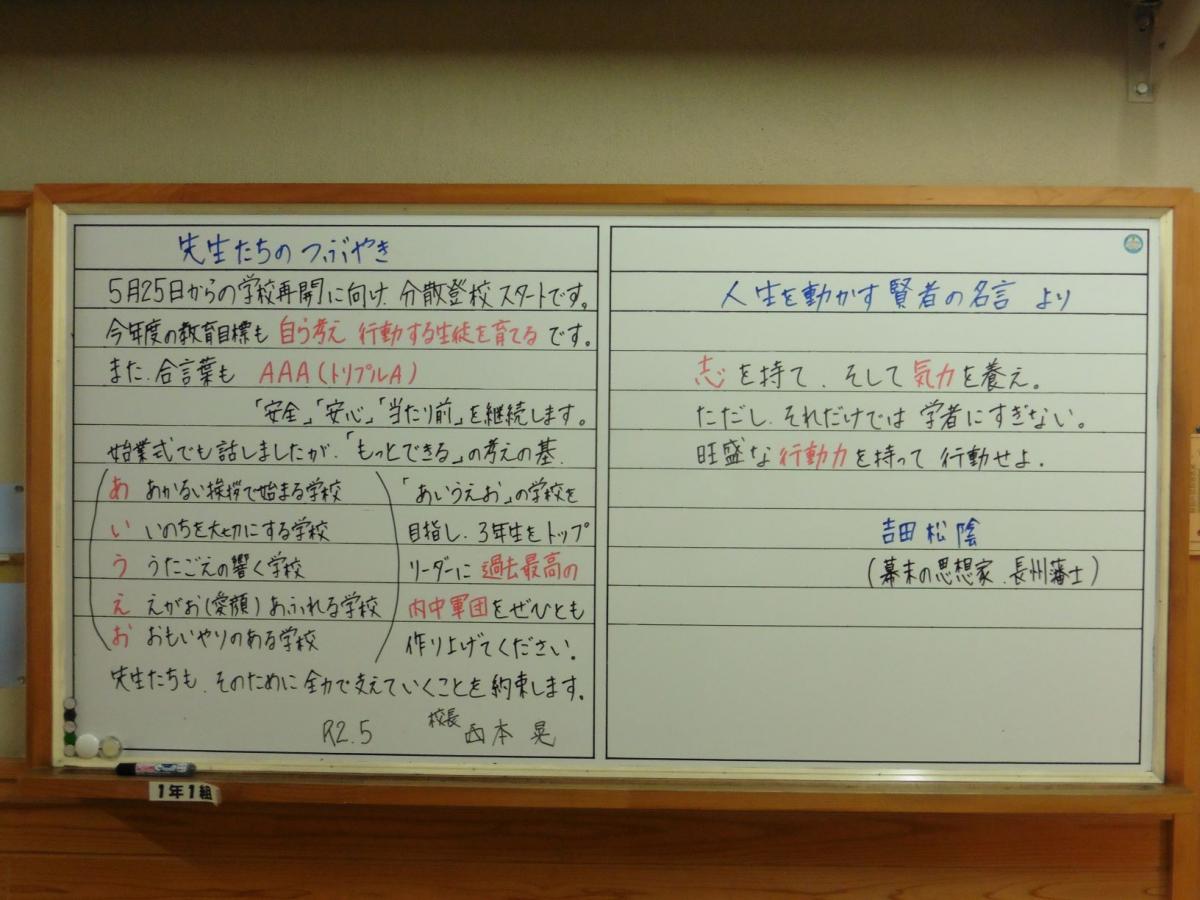 先生たちのつぶやき
5月25日からの学校再開に向け、分散登校スタートです。
今年度の教育目標も 自ら考え 行動する生徒を育てる です。
また、合言葉も AAA(トリプルA)
「安全」「安心」「当たり前」を継続します。
始業式でも話しましたが、「もっとできる」の考えの基、
あ あかるい挨拶で始まる学校
い いのちを大切にする学校
う うたごえの響く学校
え えがお(愛顔)あふれる学校
お おもいやりのある学校
「あいうえお」の学校を
目指し、3年生をトップ
リーダーに 過去最高の
内中軍団をぜひとも
作り上げてください。
先生たちも、そのために全力で支えていくことを約束します。
R2.5 校長 西本 晃
人生を動かす賢者の名言 より
志を持て、そして気力を養え。
ただし、それだけでは 学者にすぎない。
旺盛な行動力を持って 行動せよ。
吉田松陰
(幕末の思想家、長州藩士)
1年1組